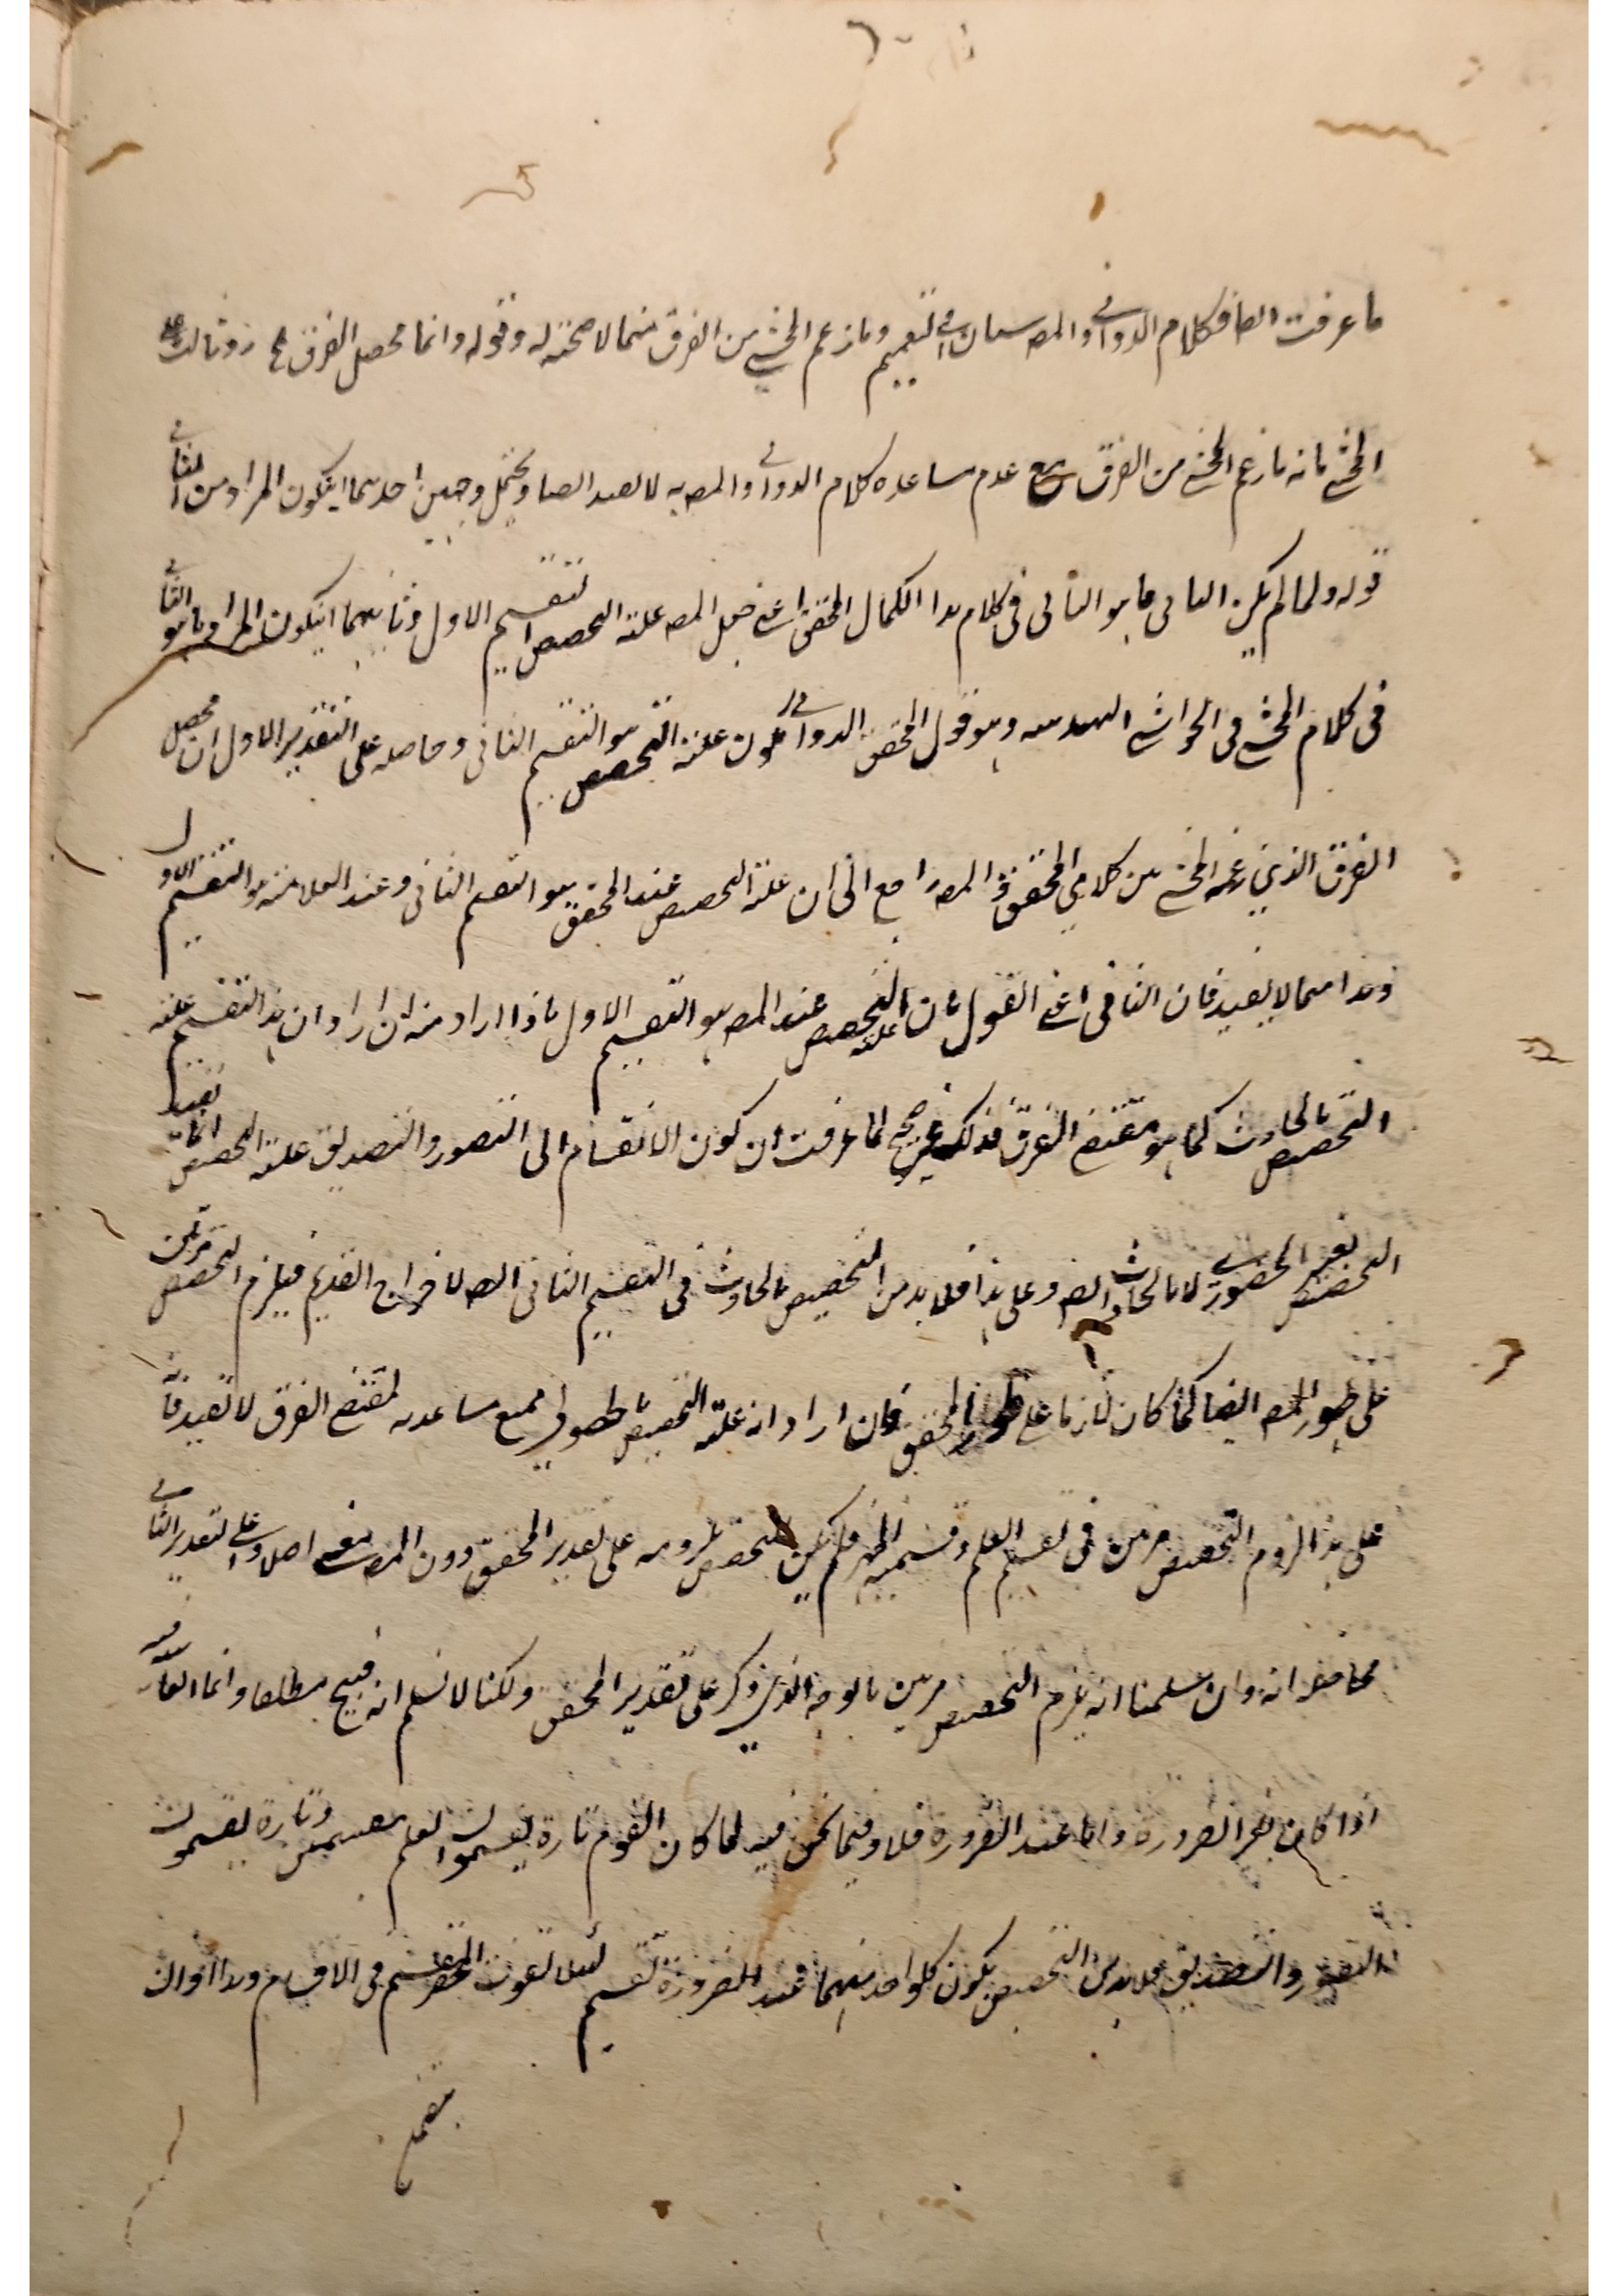 ما عرفت ايضا فكلام الدواني والمصـ سيان في التعميم وما زعم المحشي من الفرق مما لا صحة له وقوله وانما محصل الفرق
المحشي بانه ما زعم المحشي من الفرق مع عدم مساعدة كلام الدواني والمصـ به لا يفيد ايضا ويحتمل وجهين احدهما ان يكون المراد من الثاني
قوله ولما لم يكن الثاني ما هو الثاني في كلام هذا الكمال المحقق اعني جعل المصـ علة التخصيص التقسيم الاول وثانيهما ان يكون المراد ما هو الثاني
في كلام المحشي في الحواشي وهو قول المحقق الدواني بكون علة التخصيص هو التقسيم الثاني وحاصله على التقدير الاول ان محصل
الفرق الذي زعمه المحشي من كلامي المحقق والمصـ راجع الى ان علة التخصيص عند المحقق هو التقسيم الثاني وعند العلامة هو التقسيم الاول
وهذا مما لا يفيد فان الثاني اعني القول بان علة التخصيص عند المصـ هو التقسيم الاول ماذا اراد منه ان اراد ان هذا التقسيم علة
التخصيص بالحادث كما هو مقتضى الفرق فذلك غير صحيح لما عرفت ان كون الانقسام الى التصور والتصديق علة التخصيص انما يفيد
التخصيص بغير الحضوري لا بالحادث ايضـ وعلى هذا فلا بد من التخصيص بالحادث في التقسيم الثاني ايضـ لاخراج القديم فيلزم التخصيص مرتين
على طور المصـ ايضا كما كان لازما على طور المحقق فان اراد انه علة التخصيص بالحصولي فمع مساعدته لمقتضى الفرق لا يفيد فانه
على هذا لزوم التخصيص مرتين في تقسيم العلم وقسميه اظهر فلم يكن لتخصيص لزومه على تقدير المحقق دون المصـ معنى اصلا وعلى التقدير الثاني
فحاصله انه وان سلمنا انه يلزم التخصيص مرتين بالوجه الذي ذكر على تقدير المحقق ولكنا لا نسلم انه قبيح مطلقا وانما القباحة فيه
اذا كان بغير الضرورة واما عند الضرورة فلا وفيما نحن فيه لما كان القوم تارة يقسمون العلم بقسمين وتارة يقسمون
التصور والتصديق فلا بد من التخصيص بكون كلواحد منهما عند الضرورة تقسيم لئلا يفوت حصر المقسم في الاقسام وهذا اذا كان